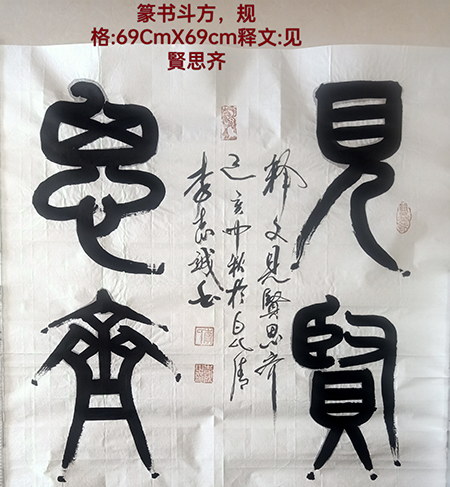 篆书斗方，规
格:69CmX69cm释文:见
賢思齐
見賢
思齊
释文見賢思齐
己亥中秋於
李志诚书